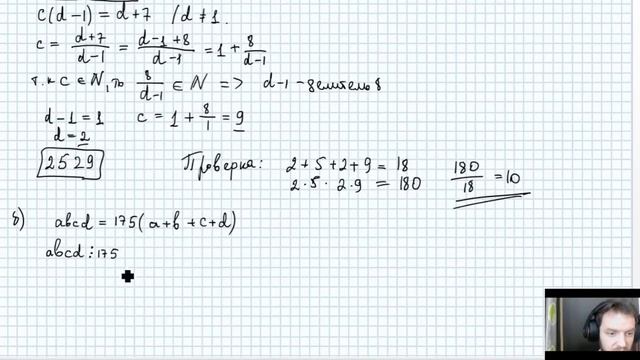 c(d-1) = d+7 /d ≠ 1.
c = d+7/d-1 = d-1+8/d-1 = 1 + 8/d-1
т.к c ∈ N, то 8/d-1 ∈ N => d-1 - делитель 8
d-1 = 1 c = 1 + 8/1 = 9
d = 2
2529 Проверка: 2+5+2+9 = 18 180/18 = 10
2·5·2·9 = 180
б) abcd = 175(a+b+c+d)
abcd ⋮ 175